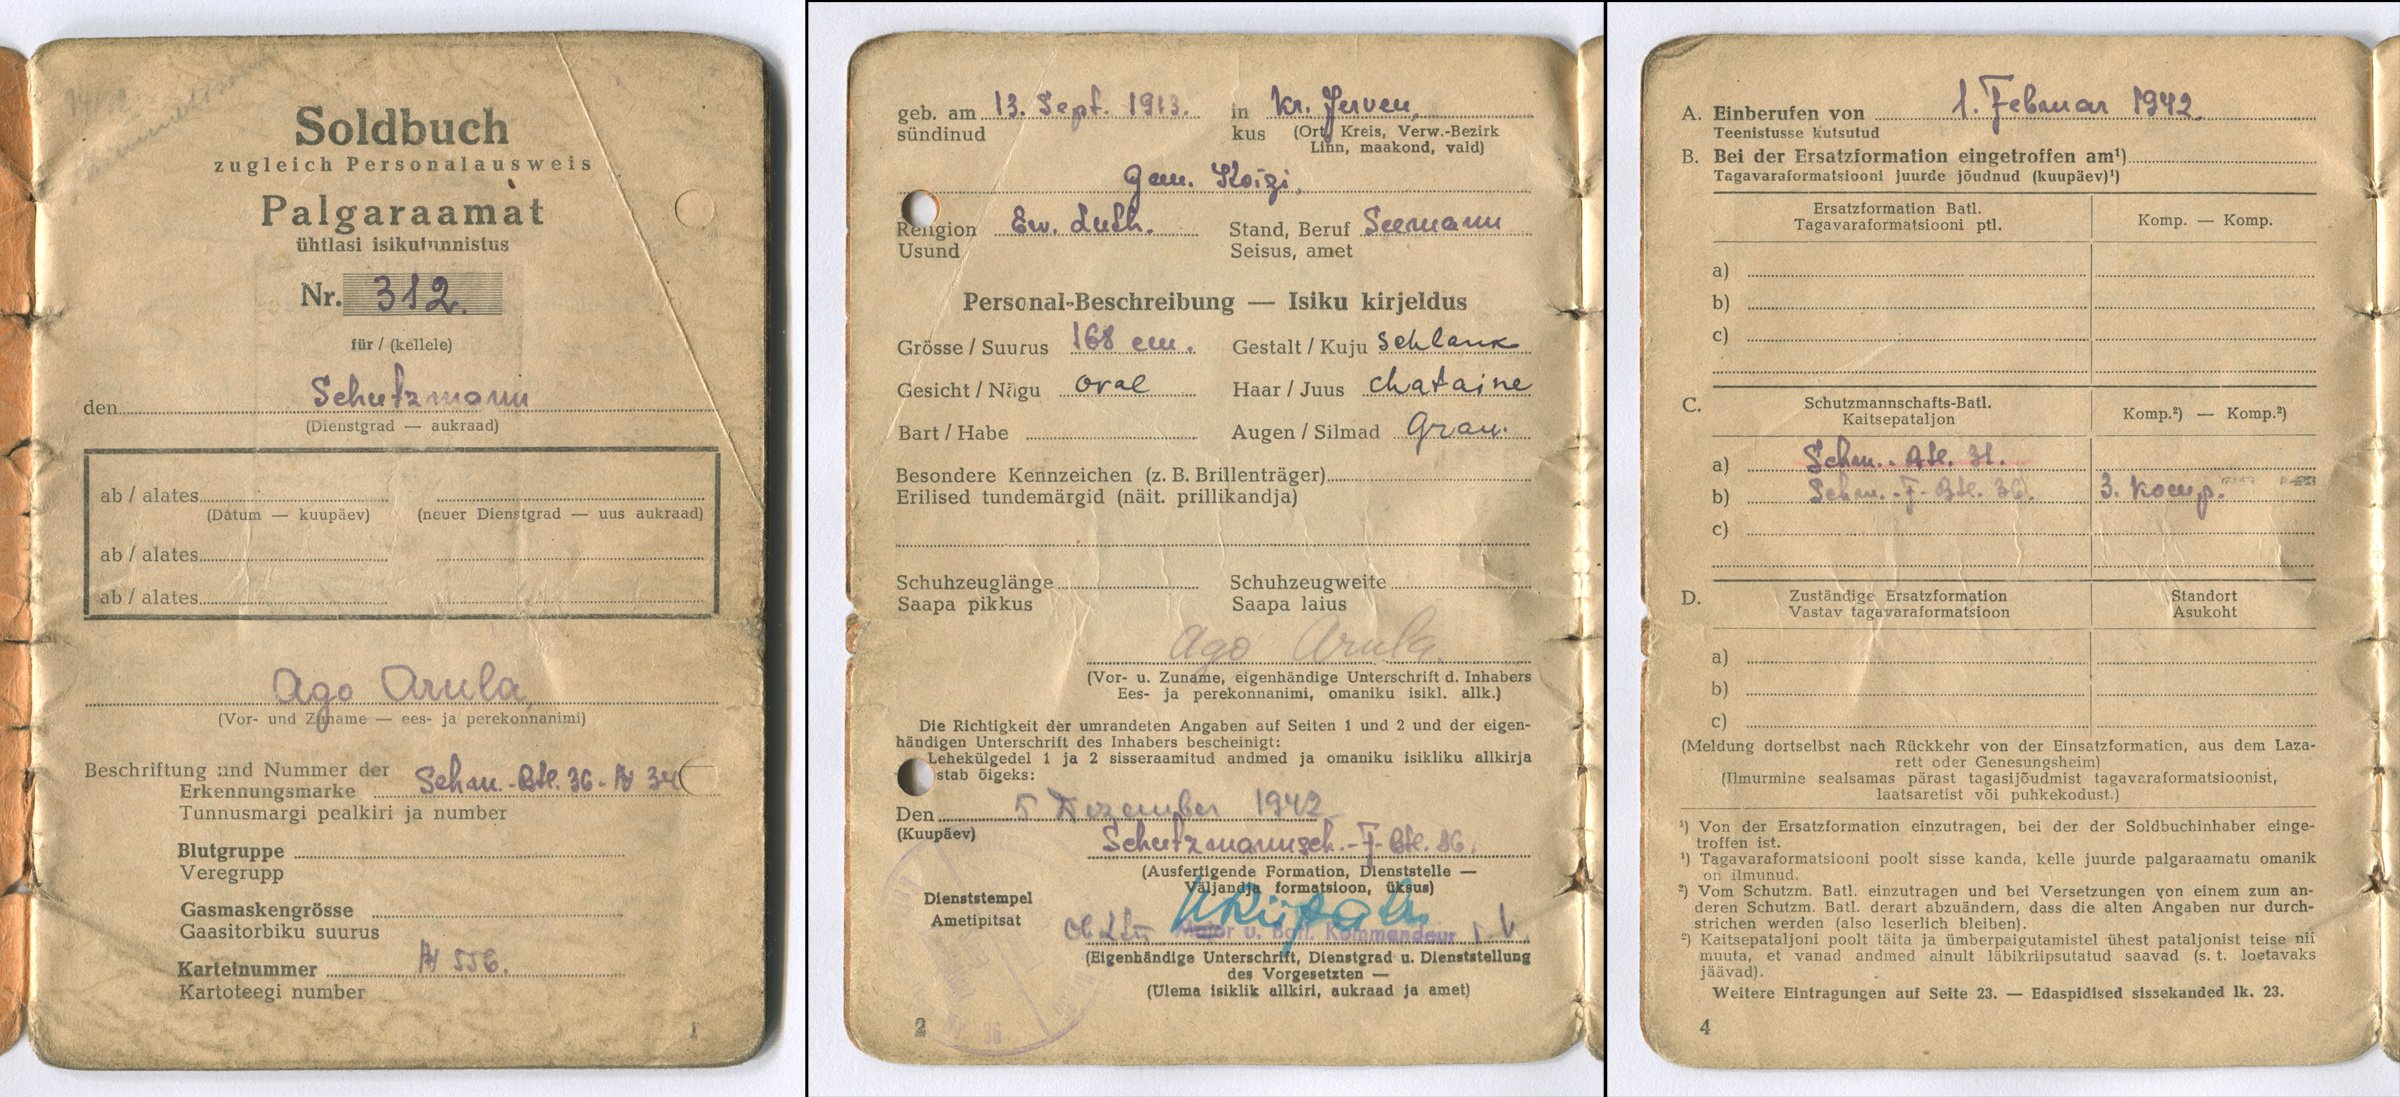 Soldbuch
zugleich Personalausweis
Palgaraamat
ühtlasi isikutunnistus
Nr. 312.
für / (kellele)
den Schutzmann
(Dienstgrad — aukraad)
ab / alates
(Datum — kuupäev) (neuer Dienstgrad — uus aukraad)
ab / alates
ab / alates
Ago Arula,
(Vor- und Zuname — ees- ja perekonnanimi)
Beschriftung und Nummer der
Erkennungsmarke Schu.-Btl. 36 - 34
Tunnusmärgi pealkiri ja number
Blutgruppe
Veregrupp
Gasmaskengrösse
Gaasitorbiku suurus
Karteinummer 556.
Kartoteegi number
1
geb. am 13. Sept. 1913. in Kr. Jerven,
sündinud kus (Ort, Kreis, Verw.-Bezirk
Linn, maakond, vald)
Gem. Koigi,
Religion Ew. Luth. Stand, Beruf Seemann
Usund Seisus, amet
Personal-Beschreibung — Isiku kirjeldus
Grösse / Suurus 168 cm. Gestalt / Kuju schlank
Gesicht / Nägu oval Haar / Juus chataine
Bart / Habe Augen / Silmad Grau.
Besondere Kennzeichen (z. B. Brillenträger)
Erilised tundemärgid (näit. prillikandja)
Schuhzeuglänge Schuhzeugweite
Saapa pikkus Saapa laius
Ago Arula.
(Vor- u. Zuname, eigenhändige Unterschrift d. Inhabers
Ees- ja perekonnanimi, omaniku isikl. allk.)
Die Richtigkeit der umrandeten Angaben auf Seiten 1 und 2 und der eigen-
händigen Unterschrift des Inhabers bescheinigt:
Lehekülgedel 1 ja 2 sisseraamitud andmed ja omaniku isikliku allkirja
stab õigeks:
Den 5 Dezember 1942
(Kuupäev) Schutzmannsch.-F-Btl. 36.
(Ausfertigende Formation, Dienststelle —
Väljandja formatsioon, üksus)
Dienststempel
Ametipitsat
Major u. Batl. Kommandeur
(Eigenhändige Unterschrift, Dienstgrad u. Dienststellung
des Vorgesetzten —
(Ülema isiklik allkiri, aukraad ja amet)
Nr. 36
2
A. Einberufen von 1. Februar 1942.
Teenistusse kutsutud
B. Bei der Ersatzformation eingetroffen am¹)
Tagavaraformatsiooni juurde jõudnud (kuupäev)¹)
Ersatzformation Batl. Komp. — Komp.
Tagavaraformatsiooni ptl.
a)
b)
c)
C. Schutzmannschafts-Batl. Komp.²) — Komp.²)
Kaitsepataljon
a) Schu.-Btl. 31.
b) Schu.-F-Btl. 36. 3. Komp.
c)
D. Zuständige Ersatzformation Standort
Vastav tagavaraformatsioon Asukoht
a)
b)
c)
(Meldung dortselbst nach Rückkehr von der Einsatzformation, aus dem Laza-
rett oder Genesungsheim)
(Ilmurmine sealsamas pärast tagasijõudmist tagavaraformatsioonist,
laatsaretist või puhkekodust.)
¹) Von der Ersatzformation einzutragen, bei der der Soldbuchinhaber einge-
troffen ist.
¹) Tagavaraformatsiooni poolt sisse kanda, kelle juurde palgaraamatu omanik
on ilmunud.
²) Vom Schutzm. Batl. einzutragen und bei Versetzungen von einem zum an-
deren Schutzm. Batl. derart abzuändern, dass die alten Angaben nur durch-
strichen werden (also leserlich bleiben).
²) Kaitsepataljoni poolt täita ja ümberpaigutamistel ühest pataljonist teise nii
muuta, et vanad andmed ainult läbikriipsutatud saavad (s. t. loetavaks
jäävad).
Weitere Eintragungen auf Seite 23. — Edaspidised sissekanded lk. 23.
4